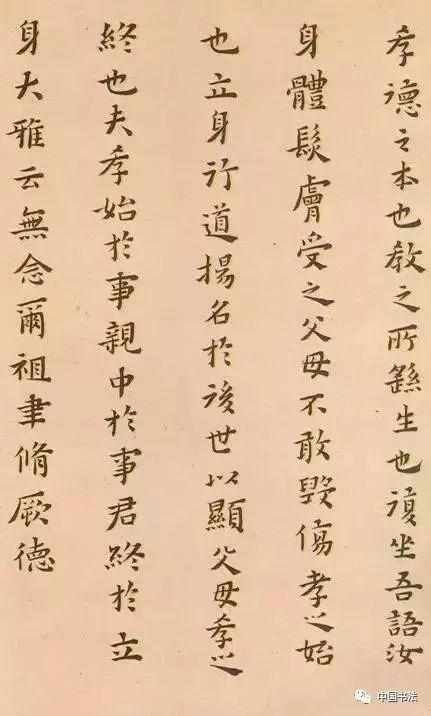 孝德之本也教之所繇生也復坐吾語汝
身體髮膚受之父母不敢毀傷孝之始
也立身行道揚名於後世以顯父母孝之
終也夫孝始於事親中於事君終於立
身大雅云無念爾祖聿脩厥德
中国书法